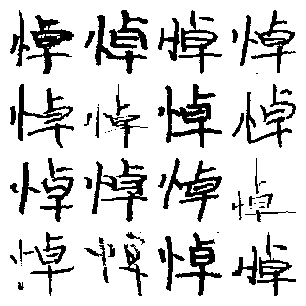 悼悼悼悼
悼悼悼悼
悼悼悼悼
悼悼悼悼